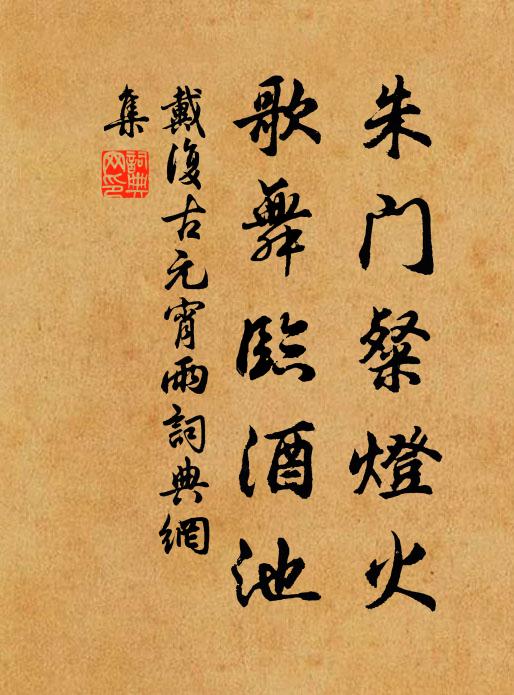 朱门粲燈火
歌舞臨酒池
戴復古元宵雨詞典網
集
詞典
网印